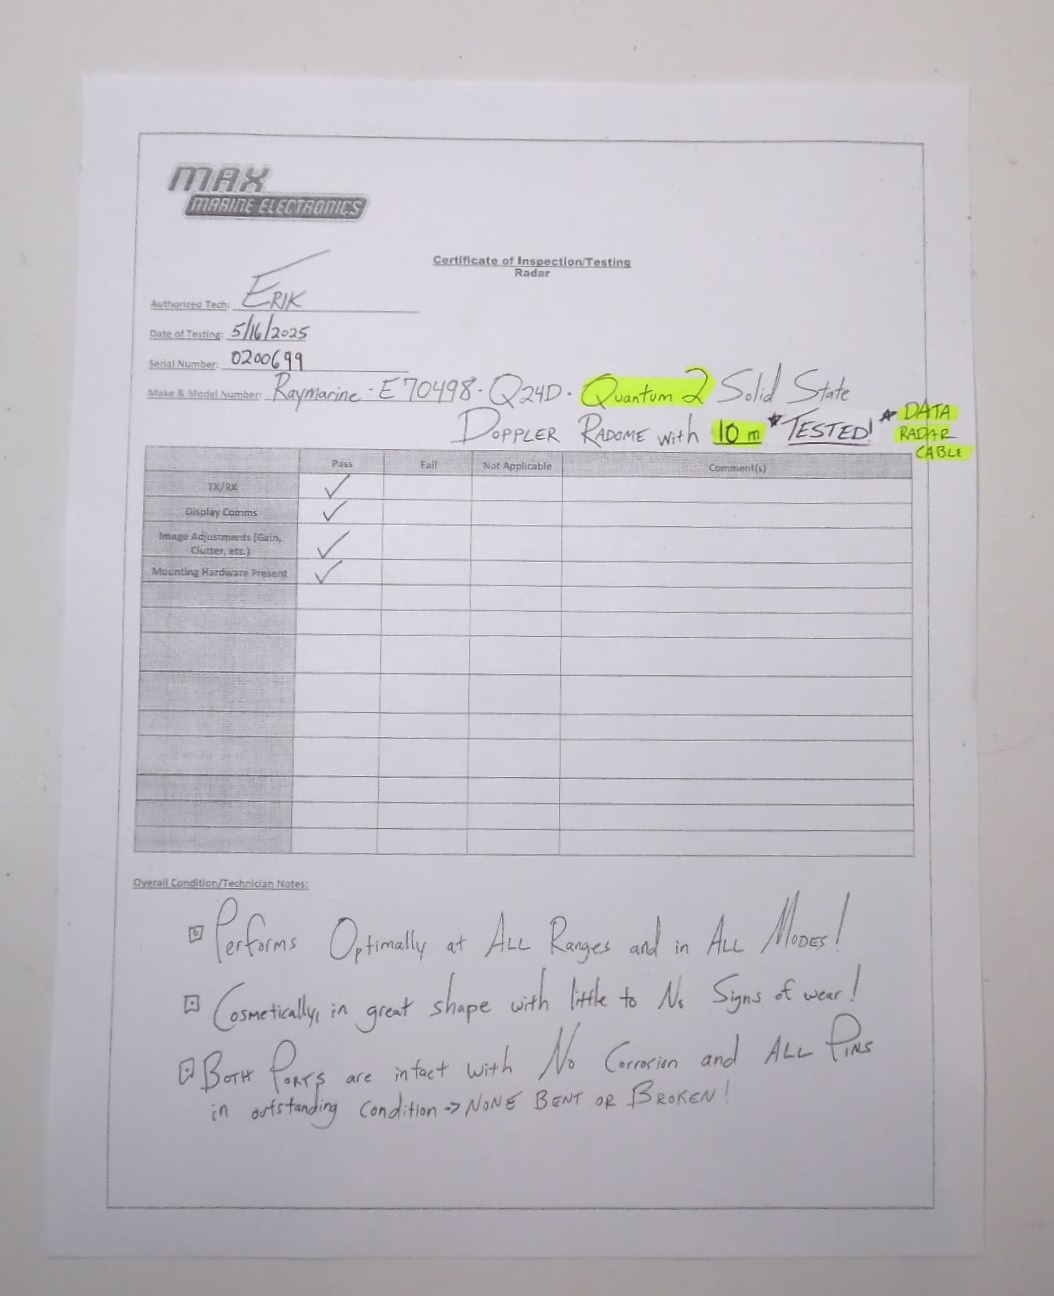 MAX
MARINE ELECTRONICS
Certificate of Inspection/Testing
Radar
Authorized Tech: ERIK
Date of Testing: 5/16/2025
Serial Number: 0200699
Make & Model Number: Raymarine · E70498 · Q24D · Quantum 2 Solid State
DOPPLER RADOME with 10 m *TESTED!* DATA
RADAR
CABLE
Pass Fail Not Applicable Comment(s)
TX/RX ✓
Display Comms ✓
Image Adjustments (Gain,
Clutter, etc.) ✓
Mounting Hardware Present ✓
Overall Condition/Technician Notes:
Performs Optimally at ALL Ranges and in ALL MODES!
Cosmetically, in great shape with little to No Signs of wear!
BOTH PORTS are intact with No Corrosion and ALL PINS
in outstanding condition -> NONE BENT OR BROKEN!